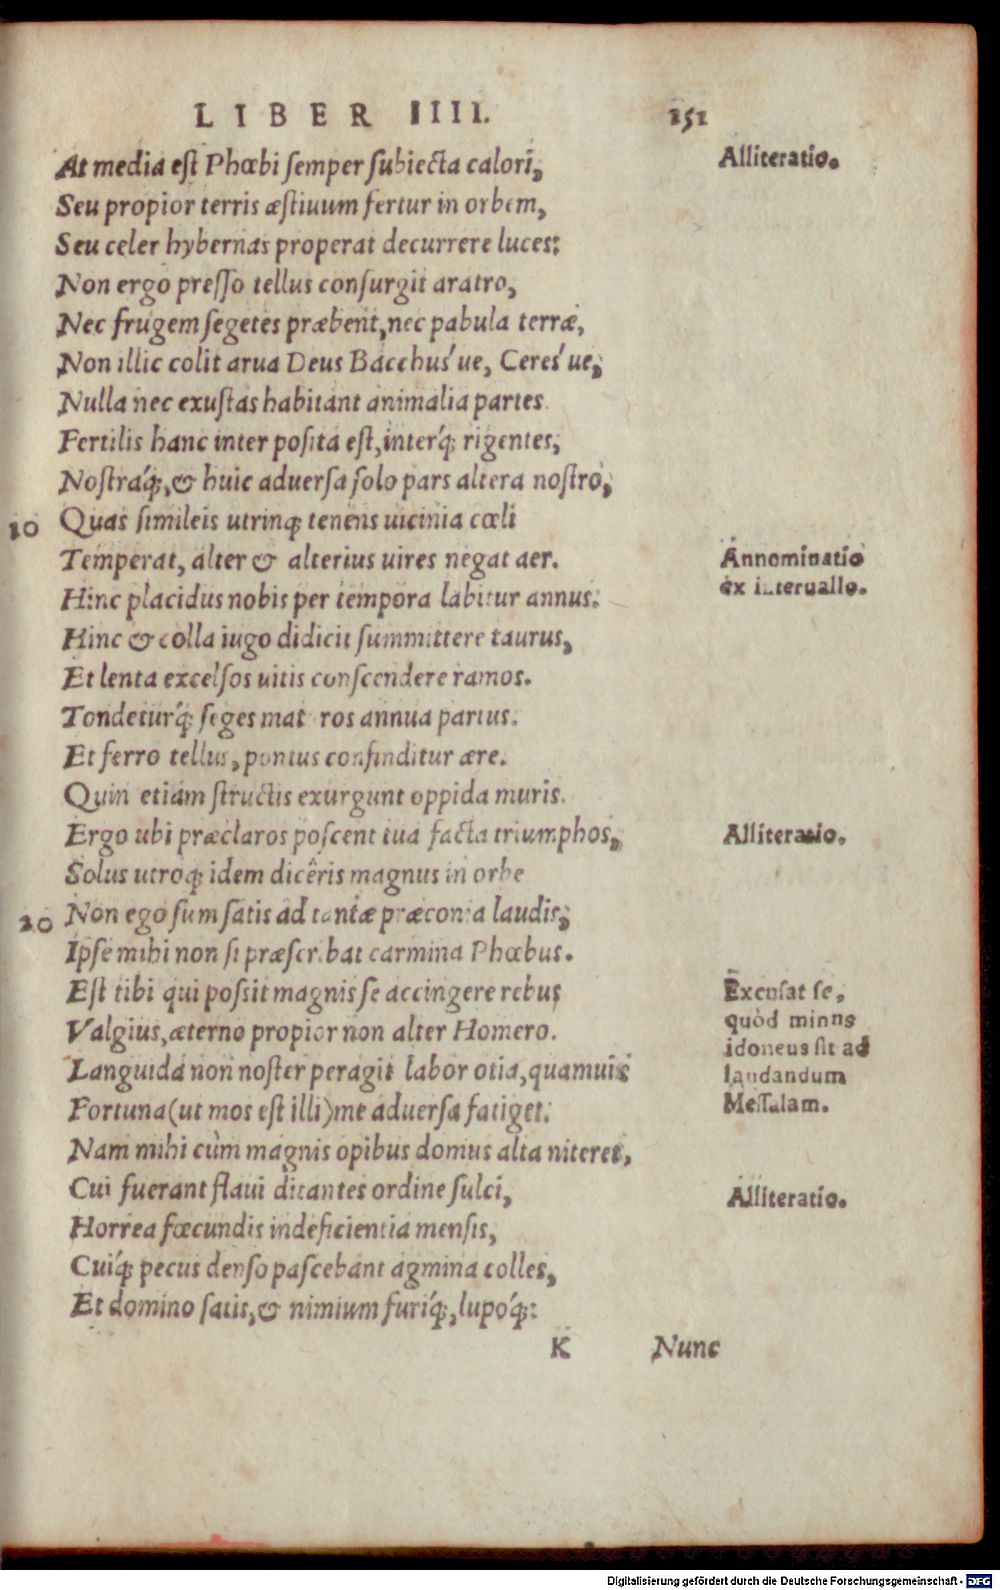 LIBER IIII. 151
At media est Phœbi semper subiecta calori, Alliteratio.
Seu propior terris æstiuum fertur in orbem,
Seu celer hybernas properat decurrere luces:
Non ergo presso tellus consurgit aratro,
Nec frugem segetes præbent, nec pabula terræ,
Non illic colit arua Deus Bacchus´ue, Ceres´ue,
Nulla nec exustas habitant animalia partes.
Fertilis hanc inter posita est, interq́; rigentes,
Nostraq́;, & huic aduersa solo pars altera nostro,
10 Quas simileis utrinq; tenens uicinia cœli
Temperat, alter & alterius uires negat aer. Annominatio
ex interuallo.
Hinc placidus nobis per tempora labitur annus.
Hinc & colla iugo didicit summittere taurus,
Et lenta excelsos uitis conscendere ramos.
Tondeturq́; seges mat ros annua partus.
Et ferro tellus, pontus confinditur ære.
Quin etiam structis exurgunt oppida muris.
Ergo ubi præclaros poscent tua facta triumphos, Alliteratio.
Solus utroq; idem dicêris magnus in orbe
20 Non ego sum satis ad tantæ præconia laudis,
Ipse mihi non si præscribat carmina Phœbus.
Est tibi qui possit magnis se accingere rebus
Valgius, æterno propior non alter Homero.
Languida non noster peragit labor otia, quamuis
Fortuna (ut mos est illi) me aduersa fatiget.
Excusat se,
quòd minus
idoneus sit ad
laudandum
Messalam.
Nam mihi cùm magnis opibus domus alta niteret,
Cui fuerant flaui ditantes ordine sulci, Alliteratio.
Horrea fœcundis indeficientia mensis,
Cuiq́; pecus denso pascebant agmina colles,
Et domino satis, & nimium furiq́;, lupoq́;:
K Nunc
Digitalisierung gefördert durch die Deutsche Forschungsgemeinschaft - DFG